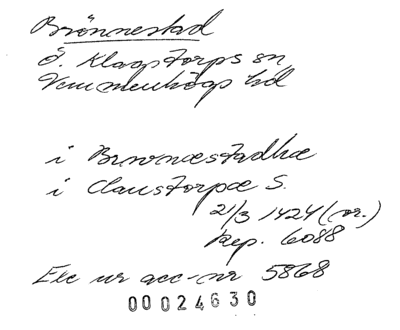 Brönnestad
Ö. Klagstorps sn
Vemmenhögs hd
i Brwnæstadhæ
i Claustorpæ S.
21/3 1424 (or.)
Rep. 6088
Exc ur acc-nr 5868
00024630